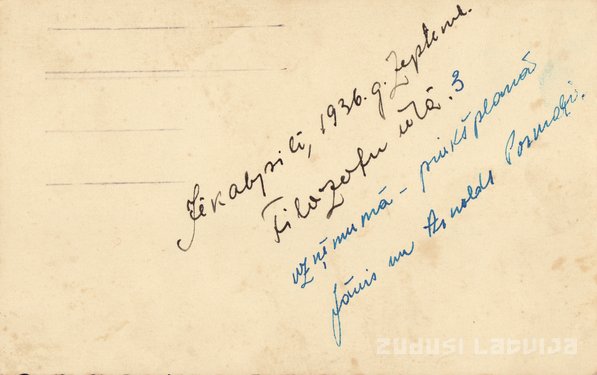 Jēkabpilī, 1936. g.
Filozofu ielā. 3
uzņēmumā - priekšplanā
Jānis un Arnolds
zudusi latvija